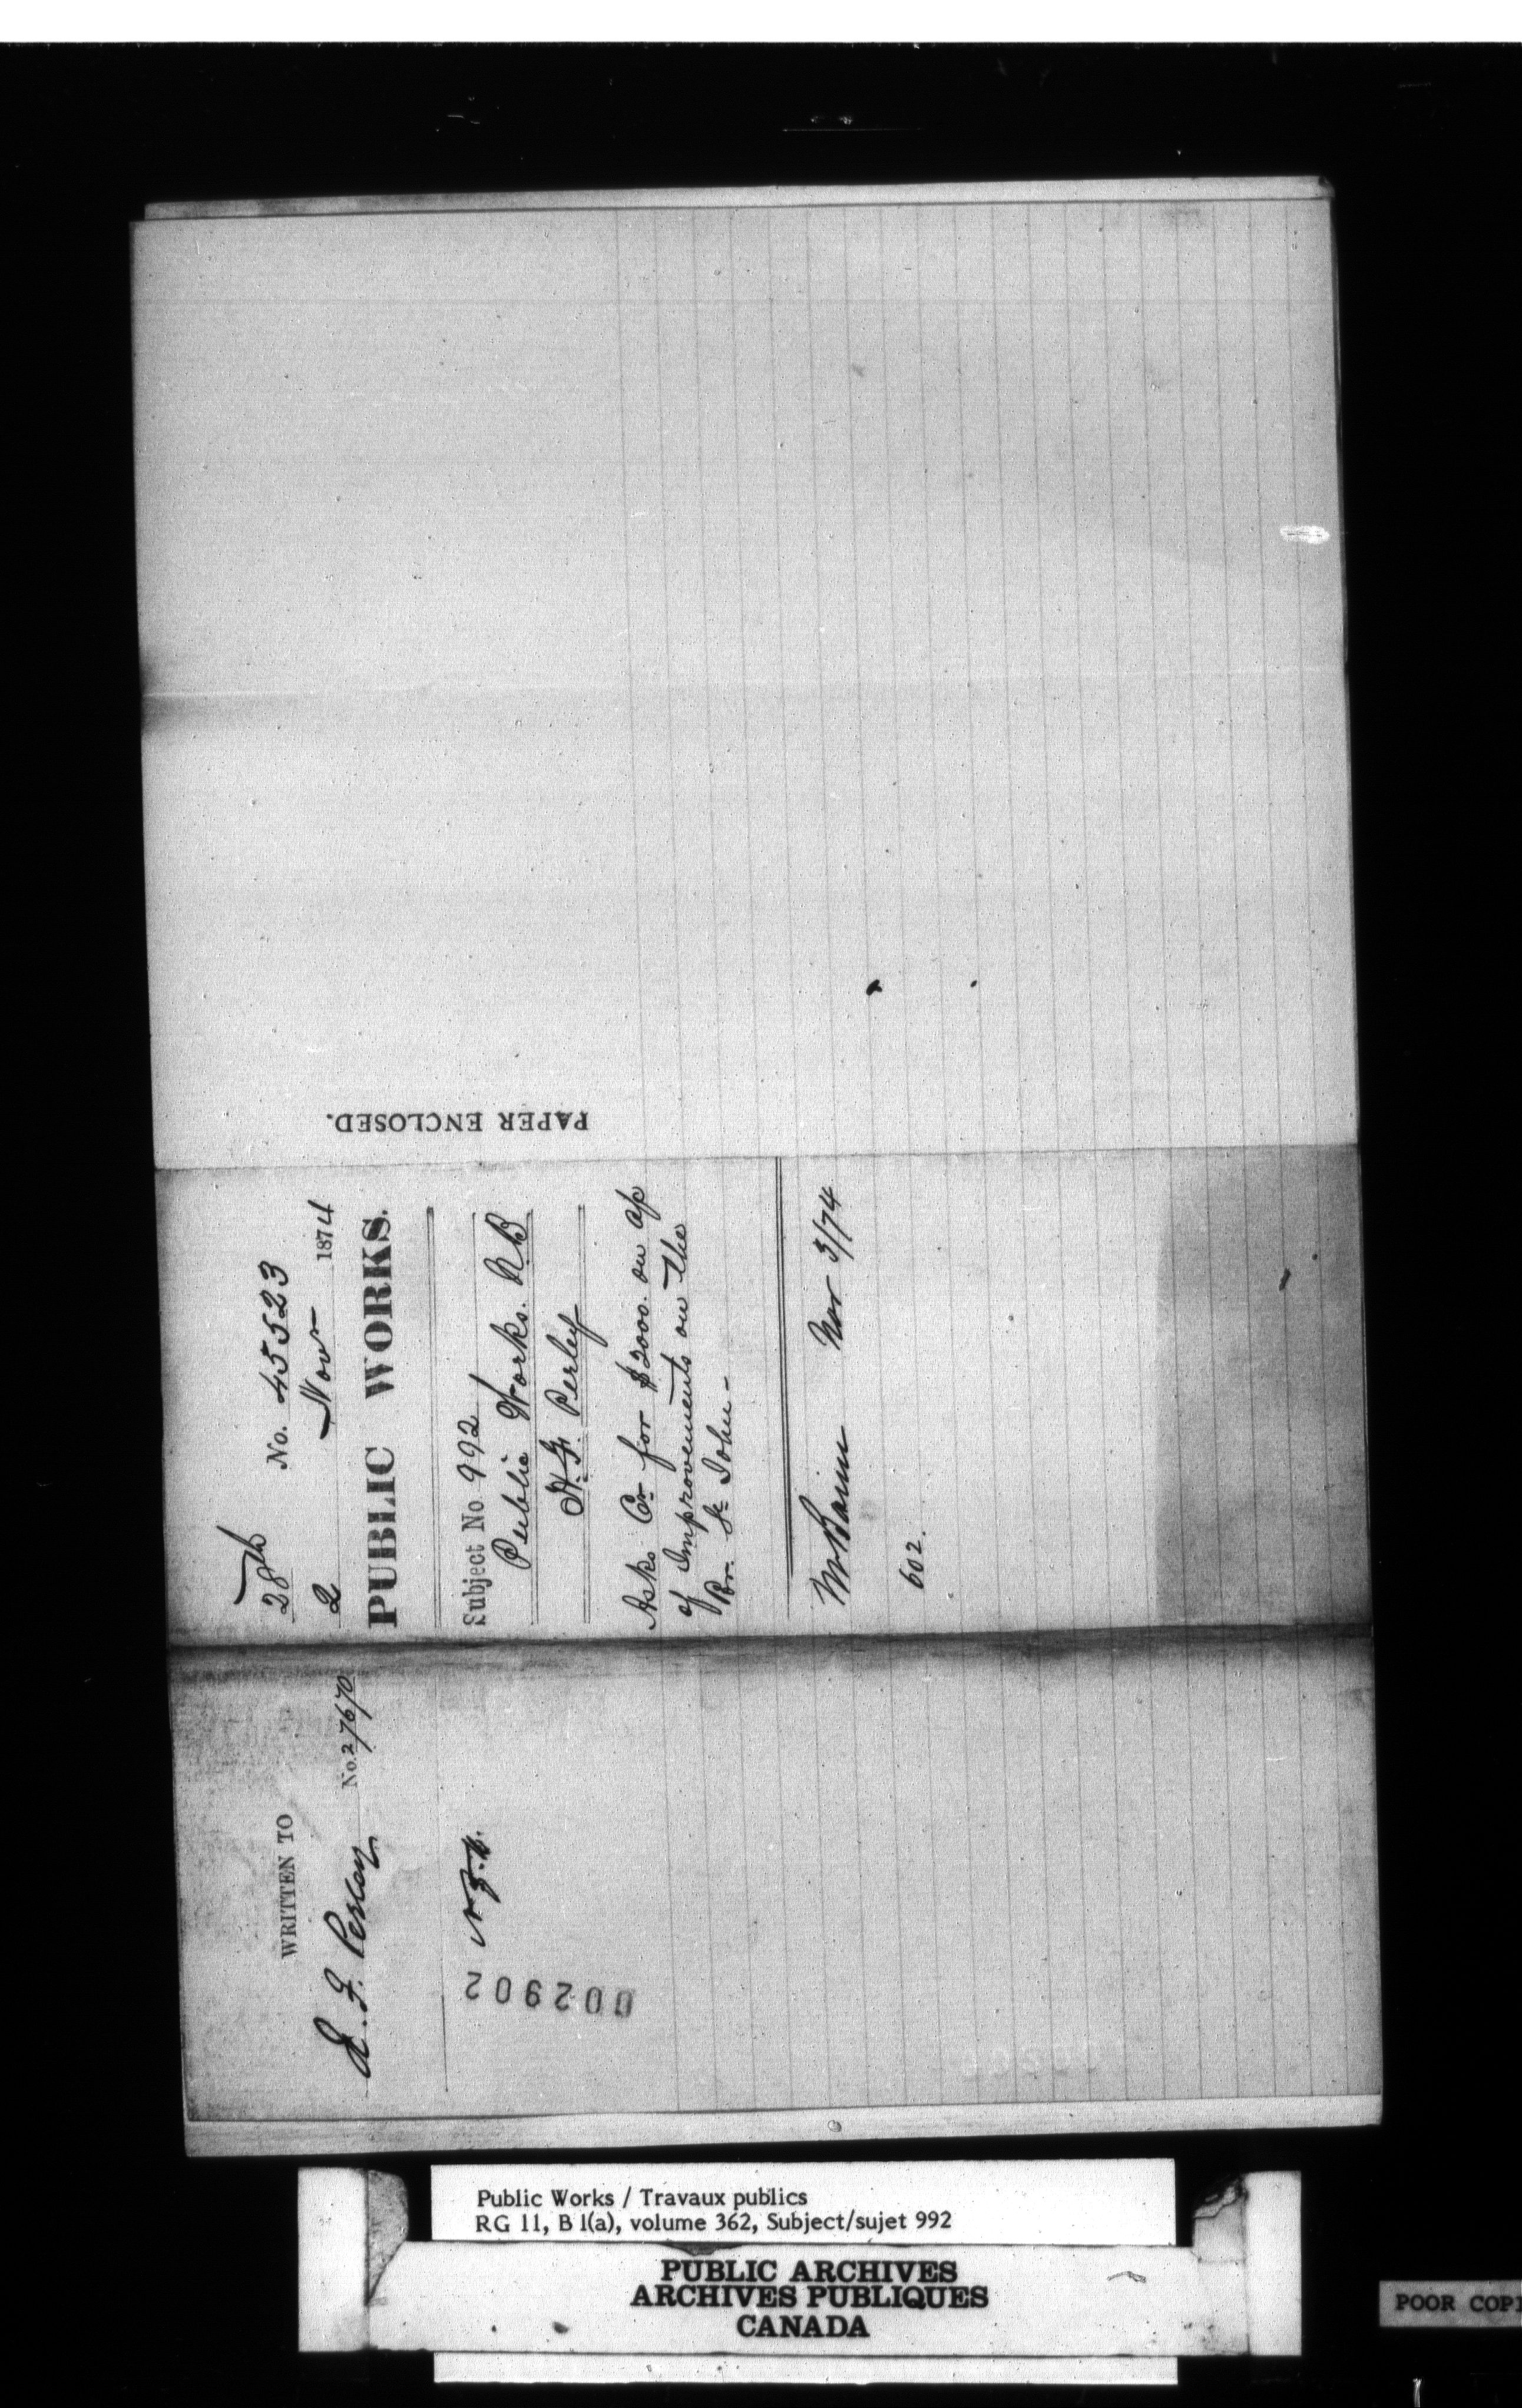 PAPER ENCLOSED.
28th No. 45523
2 Nov 1874
PUBLIC WORKS.
Subject No 992
Public Works. N.B
H. F. Perley
Asks Cr for $2000. on a/c
of Improvements on the
Rr. St. John -
Mr Baine Nov 3/74
602.
WRITTEN TO
H. F. Perley No. 27670
002902
Public Works / Travaux publics
RG 11, B 1(a), volume 362, Subject/sujet 992
PUBLIC ARCHIVES
ARCHIVES PUBLIQUES
CANADA
POOR COPI